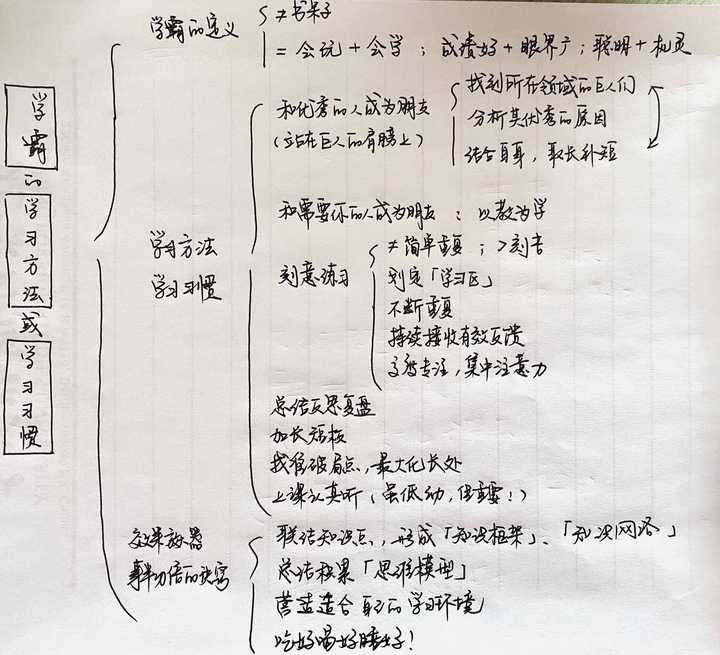 学霸的学习方法或学习习惯
学霸的定义
≠书呆子
=会玩+会学；成绩好+眼界广；聪明+机灵
学习方法
学习习惯
和优秀的人成为朋友
(站在巨人的肩膀上)
找到所在领域的巨人们
分析其优秀的原因
结合自身，取长补短
和需要你的人成为朋友：以教为学
刻意练习
≠简单重复；>刻苦
划定「学习区」
不断重复
持续接收有效反馈
高度专注，集中注意力
总结反思复盘
加长短板
找准破局点，最大化长处
上课认真听(虽低幼，但重要!)
效果放大器
事半功倍的诀窍
联结知识点，形成「知识框架」、「知识网络」
总结积累「思维模型」
营造适合自己的学习环境
吃好喝好睡好!